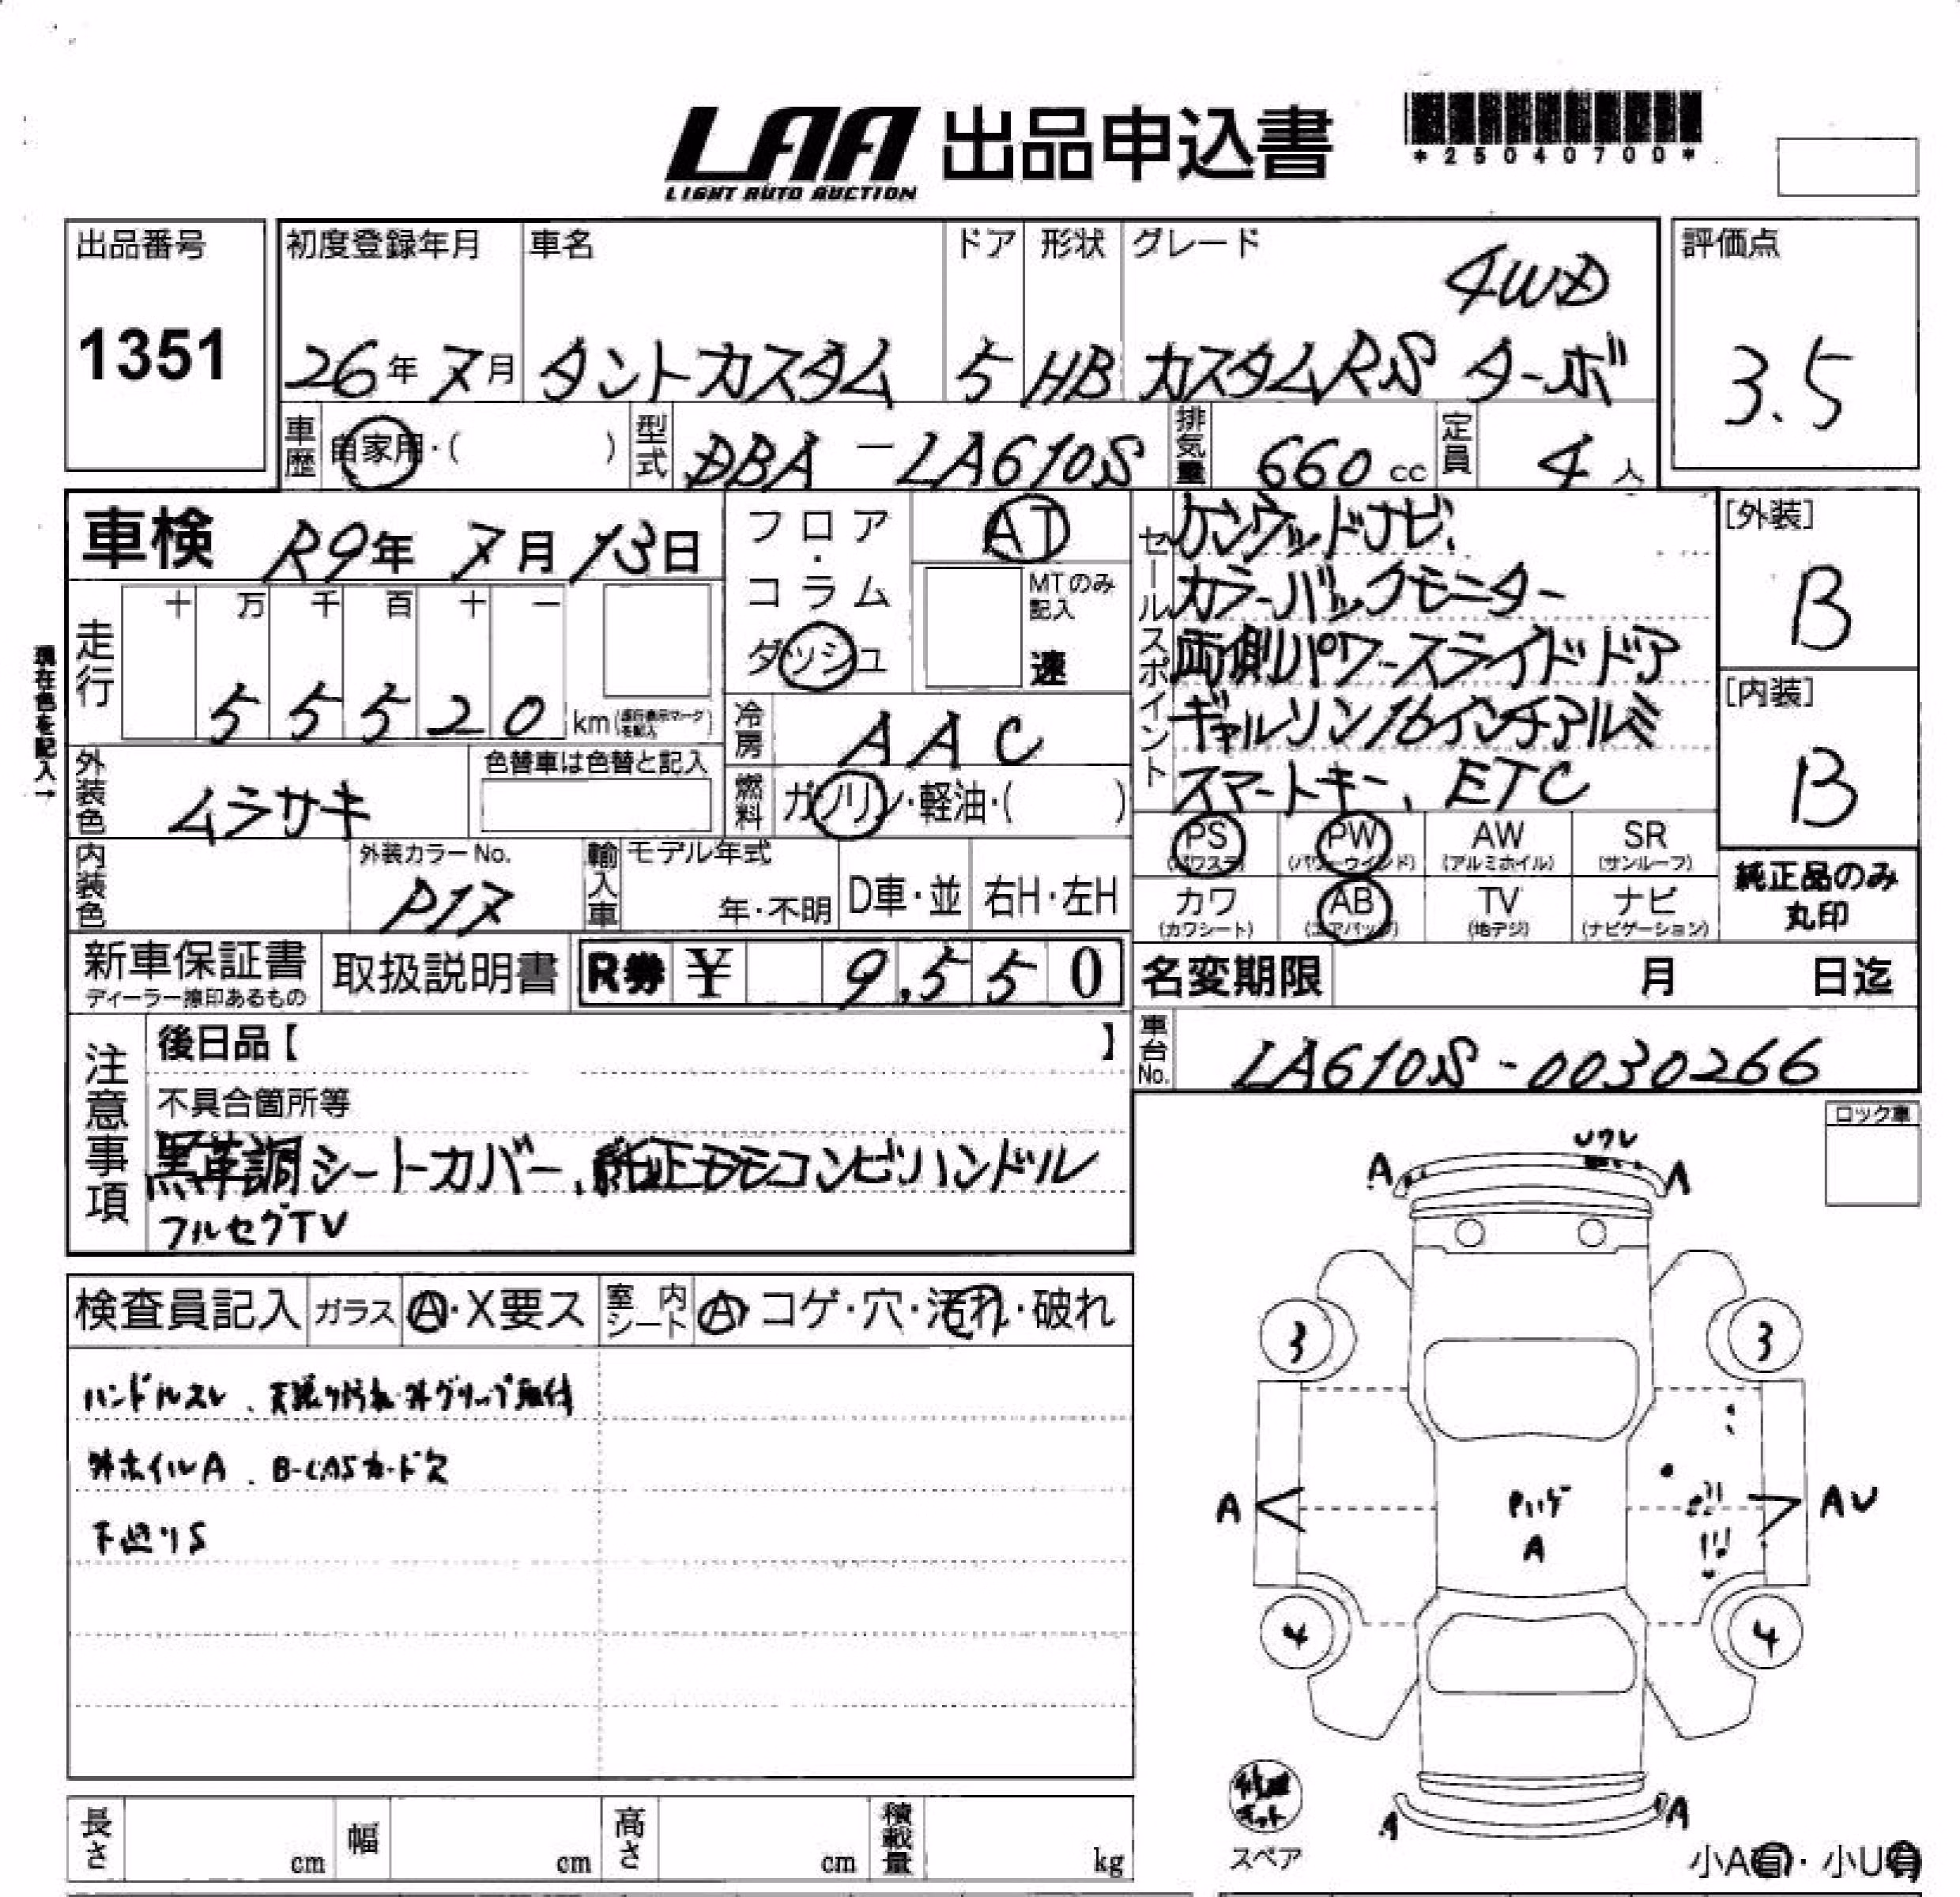 LAA 出品申込書
LIGHT AUTO AUCTION
*25040700*
出品番号
1351
初度登録年月
26年7月
車名
タントカスタム
ドア
5
形状
HB
グレード
4WD
カスタムRS ターボ
評価点
3.5
車歴
自家用・( )
型式
DBA-LA610S
排気量
660 cc
定員
4 人
車検 R9年 7月 13日
フロア・コラム
ダッシュ
AT
MTのみ
記入
速
走行
十 万 千 百 十 一
5 5 5 2 0 km
現在色を記入→
冷房
AAC
外装色
ムラサキ
色替車は色替と記入
燃料
ガソリン・軽油・( )
内装色
外装カラーNo.
P17
輸入車
モデル年式
年・不明
D車・並
右H・左H
セールスポイント
ケンウッドナビ、
カラーバックモニター
両側パワースライドドア
ギャルソン16インチアルミ
スマートキー、ETC
[外装]
B
[内装]
B
PS (パワステ)
PW (パワーウインド)
AW (アルミホイル)
SR (サンルーフ)
カワ (カワシート)
AB (エアバック)
TV (地デジ)
ナビ (ナビゲーション)
純正品のみ
丸印
新車保証書
ディーラー捺印あるもの
取扱説明書
R券 ¥ 9,550
名変期限 月 日迄
車台No.
LA610S-0030266
注意事項
後日品【 】
不具合箇所等
黒革調シートカバー、純正モモコンビハンドル
フルセグTV
ロック車
検査員記入
ガラス
A・X要ス
室内
シート
A・コゲ・穴・汚れ・破れ
ハンドルスレ、天張り汚れ・外グリップ取付
外ホイルA、B-CASカード欠
下廻りS
ワレ
A A
3 3
A AU
Pハゲ
A
4 4
A A
修理
キット
スペア
小A有・小U有
長さ cm
幅 cm
高さ cm
積載量 kg